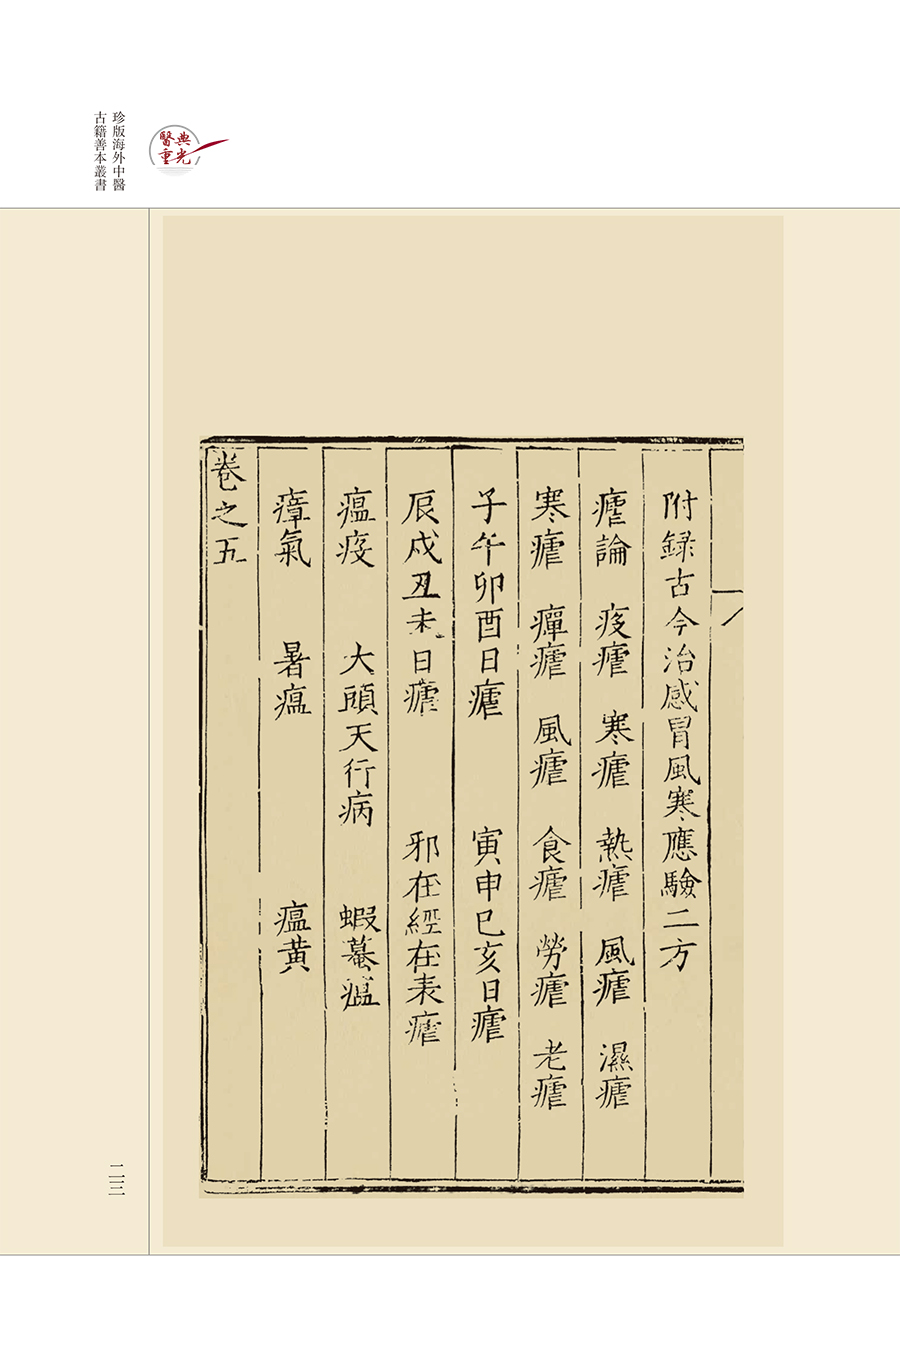 珍版海外中醫
古籍善本叢書
醫典
重光
附録古今治感冒風寒應驗二方
瘧論 疫瘧 寒瘧 熱瘧 風瘧 濕瘧
寒瘧 癉瘧 風瘧 食瘧 勞瘧 老瘧
子午卯酉日瘧 寅申巳亥日瘧
辰戌丑未日瘧 邪在經在表瘧
瘟疫 大頭天行病 蝦蟇瘟
瘴氣 暑瘟 瘟黄
卷之五
二三